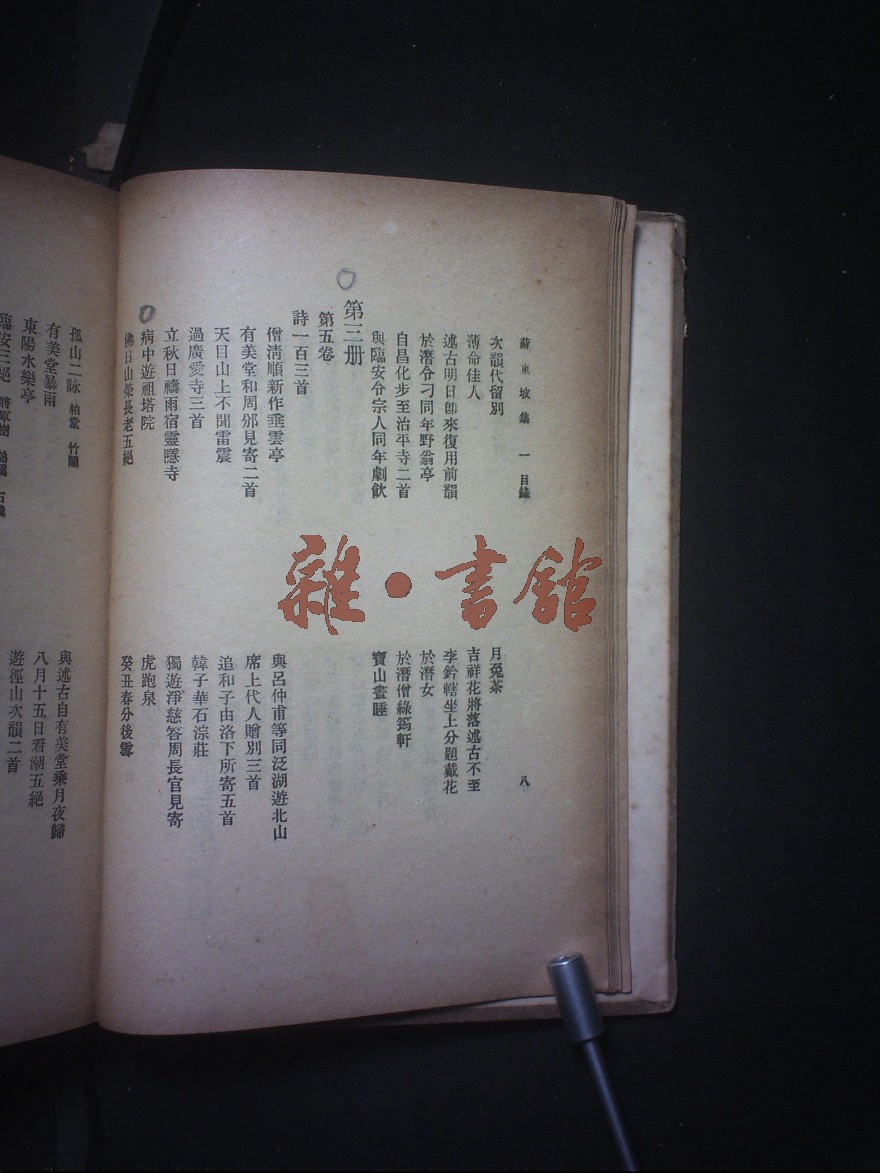 蘇東坡集 一 目錄
八
次韻代留別
月兔茶
薄命佳人
吉祥花將落述古不至
述古明日卽來復用前韻
李鈐轄坐上分題戴花
於潛令刁同年野翁亭
於潛女
自昌化步至治平寺二首
於潛僧綠筠軒
與臨安令宗人同年劇飲
寶山晝睡
第三册
第五卷
詩一百三首
僧清順新作垂雲亭
與呂仲甫等同泛湖遊北山
有美堂和周邠見寄二首
席上代人贈別三首
天目山上不聞雷震
追和子由洛下所寄五首
過廣愛寺三首
韓子華石淙莊
立秋日禱雨宿靈隱寺
獨遊淨慈答周長官見寄
病中遊祖塔院
虎跑泉
佛日山榮長老五絕
癸丑春分後雪
孤山二詠 柏堂 竹閣
有美堂暴雨
與述古自有美堂乘月夜歸
東陽水樂亭
八月十五日看潮五絕
臨安三絕 將軍樹 錦溪 石鏡
遊徑山次韻二首
雜·書館